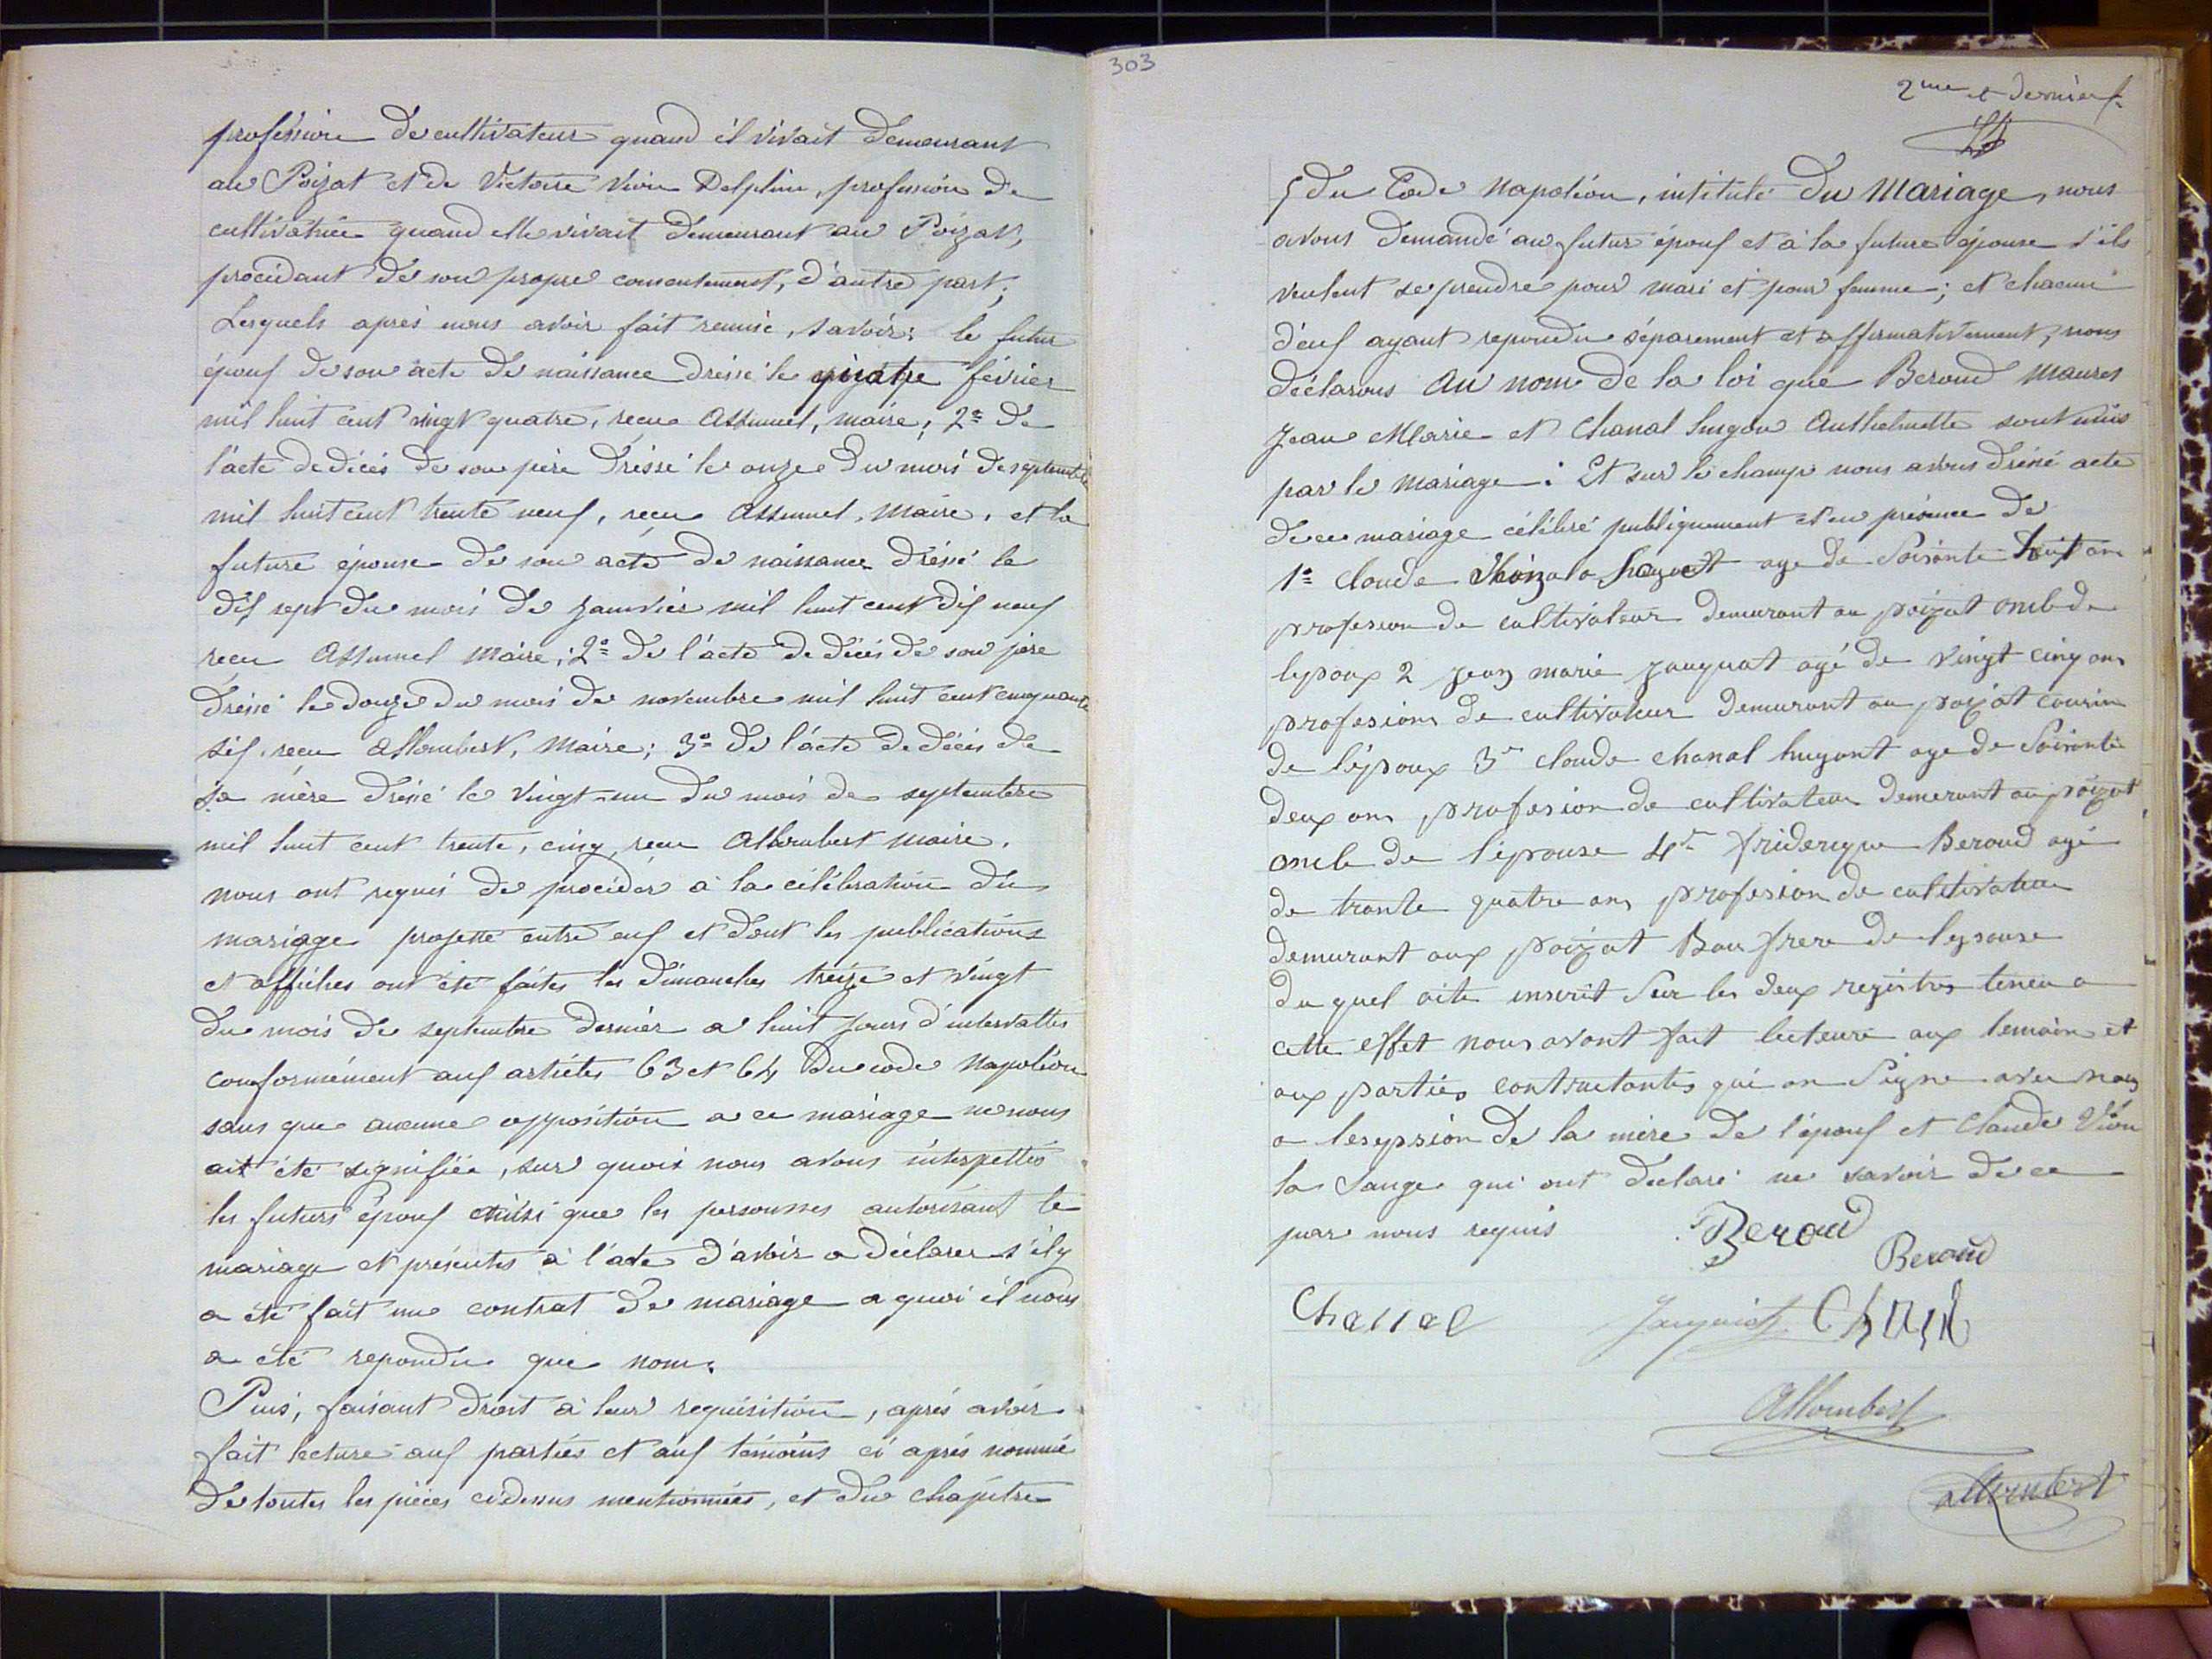 profession de cultivateur quand il vivait demeurant
au Poizat et de Victoire Vion Delphin, profession de
cultivatrice quand elle vivait demeurant au Poizat,
procédant de son propre consentement, d'autre part;
Lesquels après nous avoir fait remise, savoir: le futur
épouf de son acte de naissance dréssé le quatre février
mil huit cent vingt quatre, reçu Assumel, maire; 2º de
l'acte de décès de son père dréssé le onze du mois de septembre
mil huit cent trente neuf, reçu Assumel, Maire, et la
future épouse de son acte de naissance dréssé le
dif sept du mois de janvier mil huit cent dif neuf
reçu Assumel Maire; 2º de l'acte de décès de son père
dréssé le douze du mois de novembre mil huit cent cinquante
sif, reçu Allombert, Maire; 3º de l'acte de décès de
sa mère dréssé le vingt-un du mois de septembre
mil huit cent trente, cinq, reçu Allombert maire.
nous ont requis de procéder à la célébration du
mariage projetté entre euf et dont les publications
et affiches ont été faites les dimanches treize et vingt
du mois de septembre dernier a huit jours d'intervalles
conformément auf articles 63 et 64 du code Napoléon
sans que aucune opposition a ce mariage ne nous
ait été signifiée, sur quoi nous avons interpellés
les futurs épouf ainsi que les personnes autorisant le
mariage et présentes à l'acte d'avoir a déclarer s'il y
a été fait un contrat de mariage a quoi il nous
a été repondu que non.
Puis, faisant droit à leur requisition, après avoir
fait lecture auf parties et auf témoins ci après nommé
de toutes les pièces cidessus mentionnées, et du chapitre
303
2me et dernier f.
5 du Code Napoléon, intitulé du Mariage, nous
avons demandé au futur épouf et à la future épouse s'ils
veulent se prendre pour mari et pour femme; et chacun
d'euf ayant repondu séparement et affirmativement, nous
déclarons au nom de la loi que Beroud Maures
Jean Marie et Chanal hugon Anthelmette sont unis
par le mariage: Et sur le champ nous avons dréssé acte
de ce mariage célébré publiquement et en présence de
1º Claude age de Soisante huit ans
profesion de cultivateur demurant au poizat oncle de
lepoux 2 jean marie jauquat agé de vingt cinq ans
profesion de cultivateur demurant au poizat cousin
de l'époux 3e claude chanal hugont age de Soisonte
deux ans profesion de cultivateur demerant au poizat
oncle de l'épouse 4e friderique Beroud agé
de trante quatre ans profesion de cultivateur
demurant aux poizat Bau frere de lepouse
du quel aite inscrit Sur les deux registres teneu a
cette effet nous avont fait lecteure aux temoins et
aux parties contractantes qui on Signe avec nous
a lesepsion de la mère de l'épouf et Claude Vion
la Sange qui ont declaré ne savoir de ce
par nous requis Beroud
Beroud
Chanal Jauquiat Chanal
Allombert
Allombert